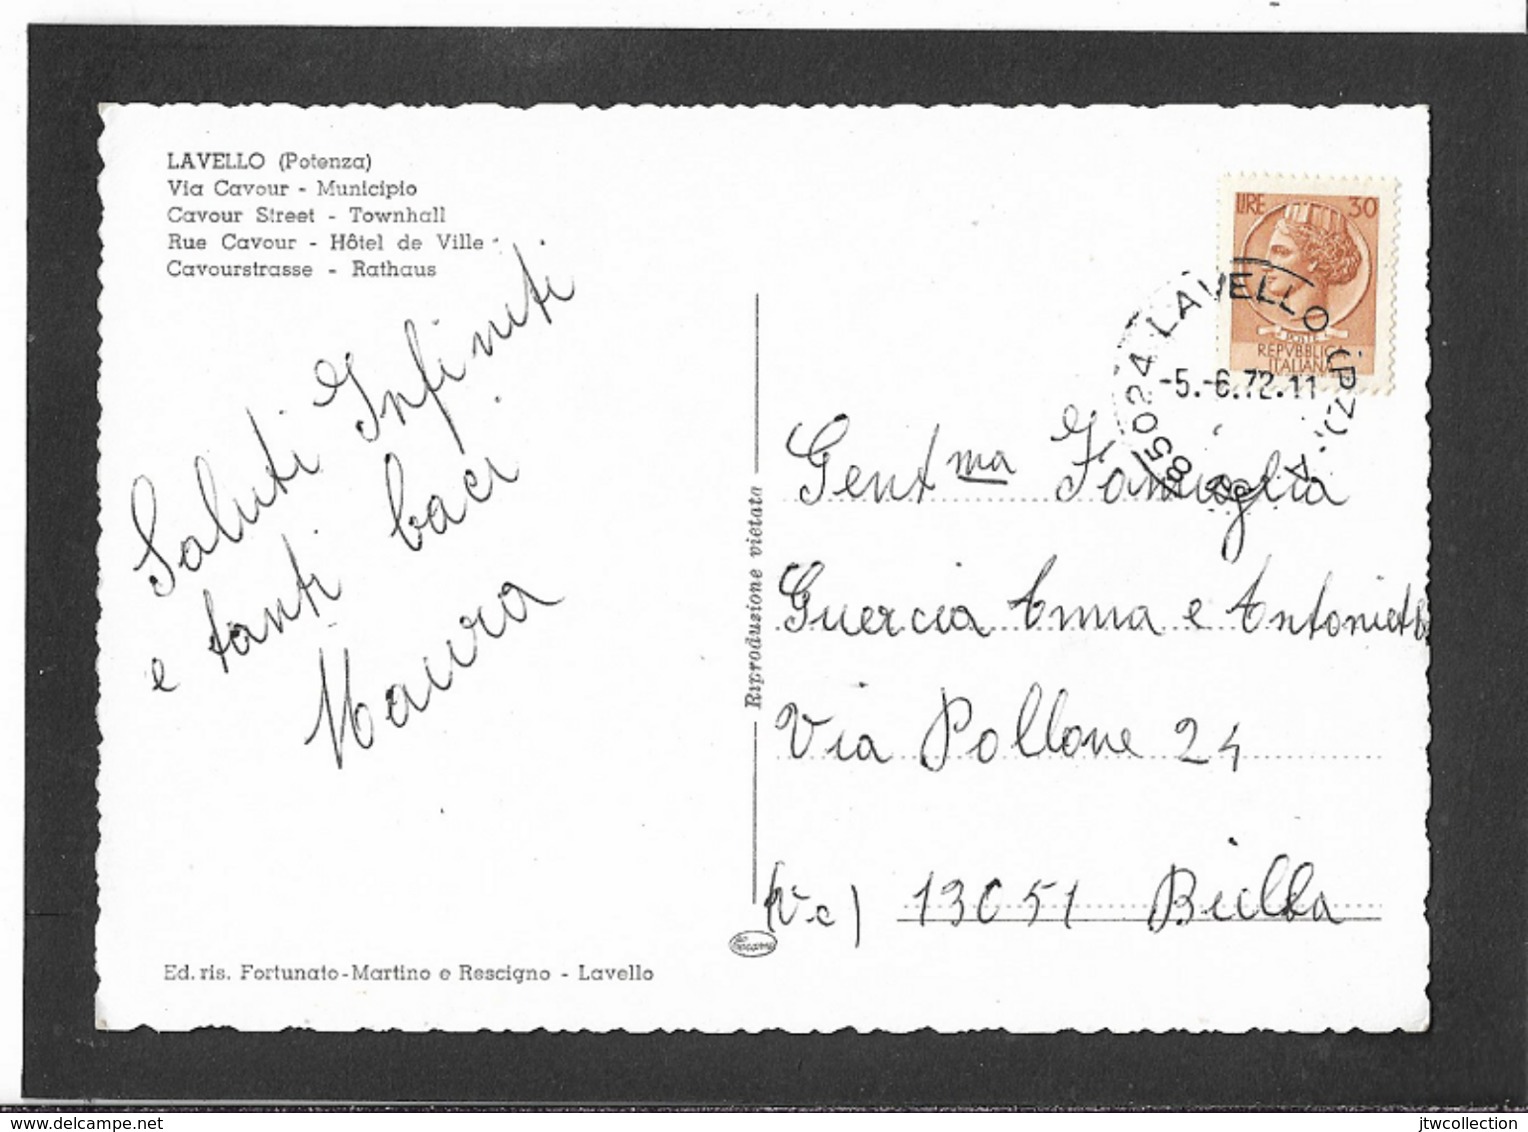 LAVELLO (Potenza)
Via Cavour - Municipio
Cavour Street - Townhall
Rue Cavour - Hôtel de Ville
Cavourstrasse - Rathaus
Saluti Infiniti
e tanti baci
Maura
Ed. ris. Fortunato-Martino e Rescigno - Lavello
Riproduzione vietata
LIRE 30
POSTE
REPVBBLICA
ITALIANA
85024 LAVELLO (PZ) A
-5.-6.72.11
Gent.ma Famiglia
Guercia Anna e Antonietta
Via Pollone 24
(Vc) 13051 Biella
www.delcampe.net
jtwcollection